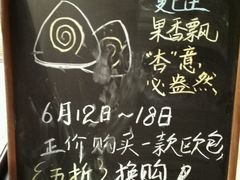 果香飘
"杏"意
必盎然
6月12日~18日
正价购买一款欧包
5折 换购